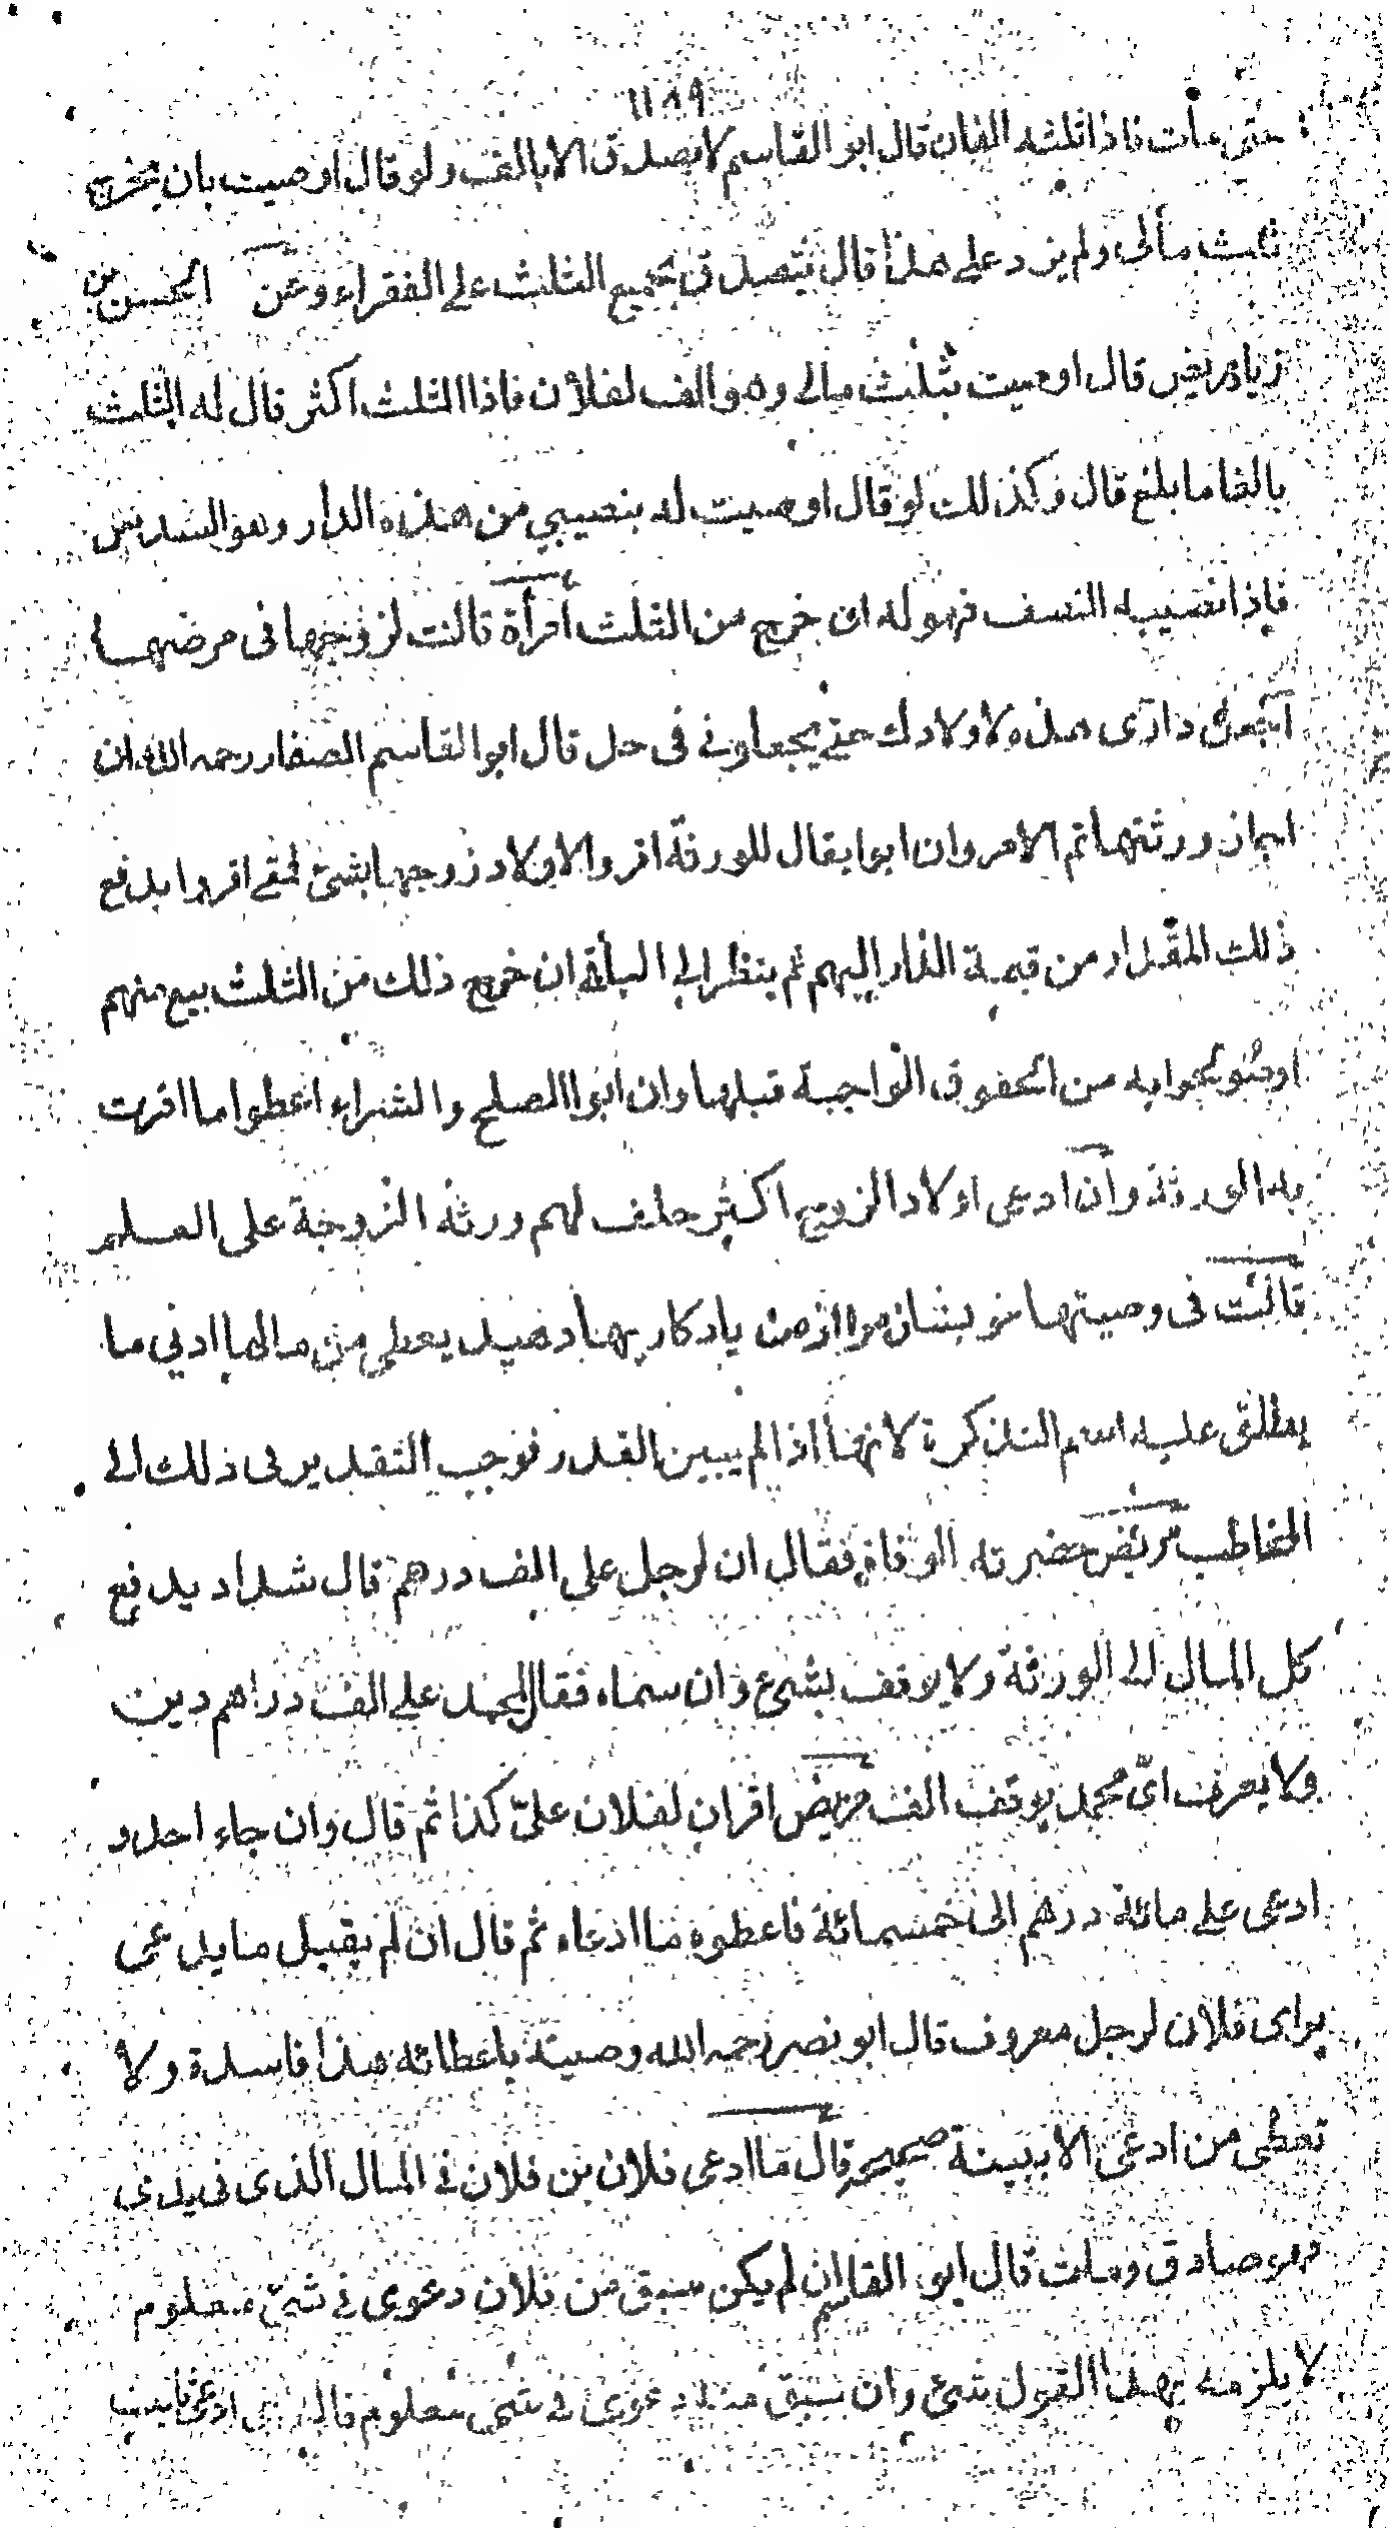 ١١٨٩
حتى مات فاذا ثلثه الفان قال ابو القاسم لا يصدق الا بالف ولو قال اوصيت بان يخرج
ثلث مالى ولم يزد على هذا قال يتصدق بجميع الثلث على الفقراء وعن الحسن بن
زياد مريض قال اوصيت بثلث مالى وهو الف لفلان فاذا الثلث اكثر قال له الثلث
بالغا ما بلغ قال وكذلك لو قال اوصيت له بنصيبي من هذه الدار وهو السدس
فاذا نصيبه النصف فهو له ان خرج من الثلث امرأة قالت لزوجها فى مرضها
اجعل دارى هذه لاولادك حتى يجعلونى فى حل قال ابو القاسم الصفار رحمه الله ان
اجاز ورثتها تم الامر وان ابوا يقال للورثة اقروا لاولاد زوجها بشئ فمتى اقروا يدفع
ذلك المقدار من قيمة الدار اليهم ثم ينظر الى الباقى ان خرج ذلك من الثلث بيع منهم
من الحقوق الواجبة قبلها وان ابوا الصلح والشراء اعطوا ما اقرت
به الورثة وان ادعى اولاد الزوج اكثر حلف لهم ورثة الزوجة على العلم
قالت فى وصيتها خويشان مرا از من يادكاريها دهيد يعطى من مالها ادنى ما
يطلق عليه اسم التذكرة لانها اذا لم يبين القدر فوجب التقدير فى ذلك الى
المخاطب مريض حضرته الوفاة فقال ان لرجل على الف درهم قال شداد يدفع
كل المال الى الورثة ولا يوقف بشئ وان سماه فقال لمحمد على الف دراهم دين
ولا يعرف اىّ محمد يوقف الف مريض اقر ان لفلان علىّ كذا ثم قال وان جاء احد و
ادعى على مائة درهم الى خمسمائة فاعطوه ما ادعاه ثم قال ان لم يقبل ما يدعى
براى فلان لرجل معروف قال ابو نصر رحمه الله وصيته باعطائه هذا فاسدة ولا
تعطى من ادعى الا ببينة صحيح قال ما ادعى فلان بن فلان فى المال الذى فى يدى
فهو صادق ومات قال ابو القاسم ان لم يكن سبق من فلان دعوى فى شئ معلوم
لا يلزمه بهذا القول شئ وان سبق منه دعوى فى شئ معلوم قال